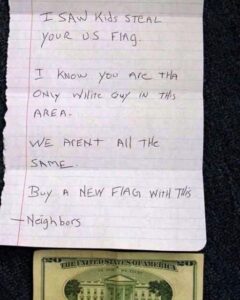 I SAW Kids STEAL
YOUR U.S FlAg.
I KNOW YOU ARE THA
ONLY WHITE GUY IN THIS
AREA.
WE ARENT All THE
SAME.
BUY A NEW FLAG WITH THIS
—Neighbors
THE UNITED STATES OF AMERICA